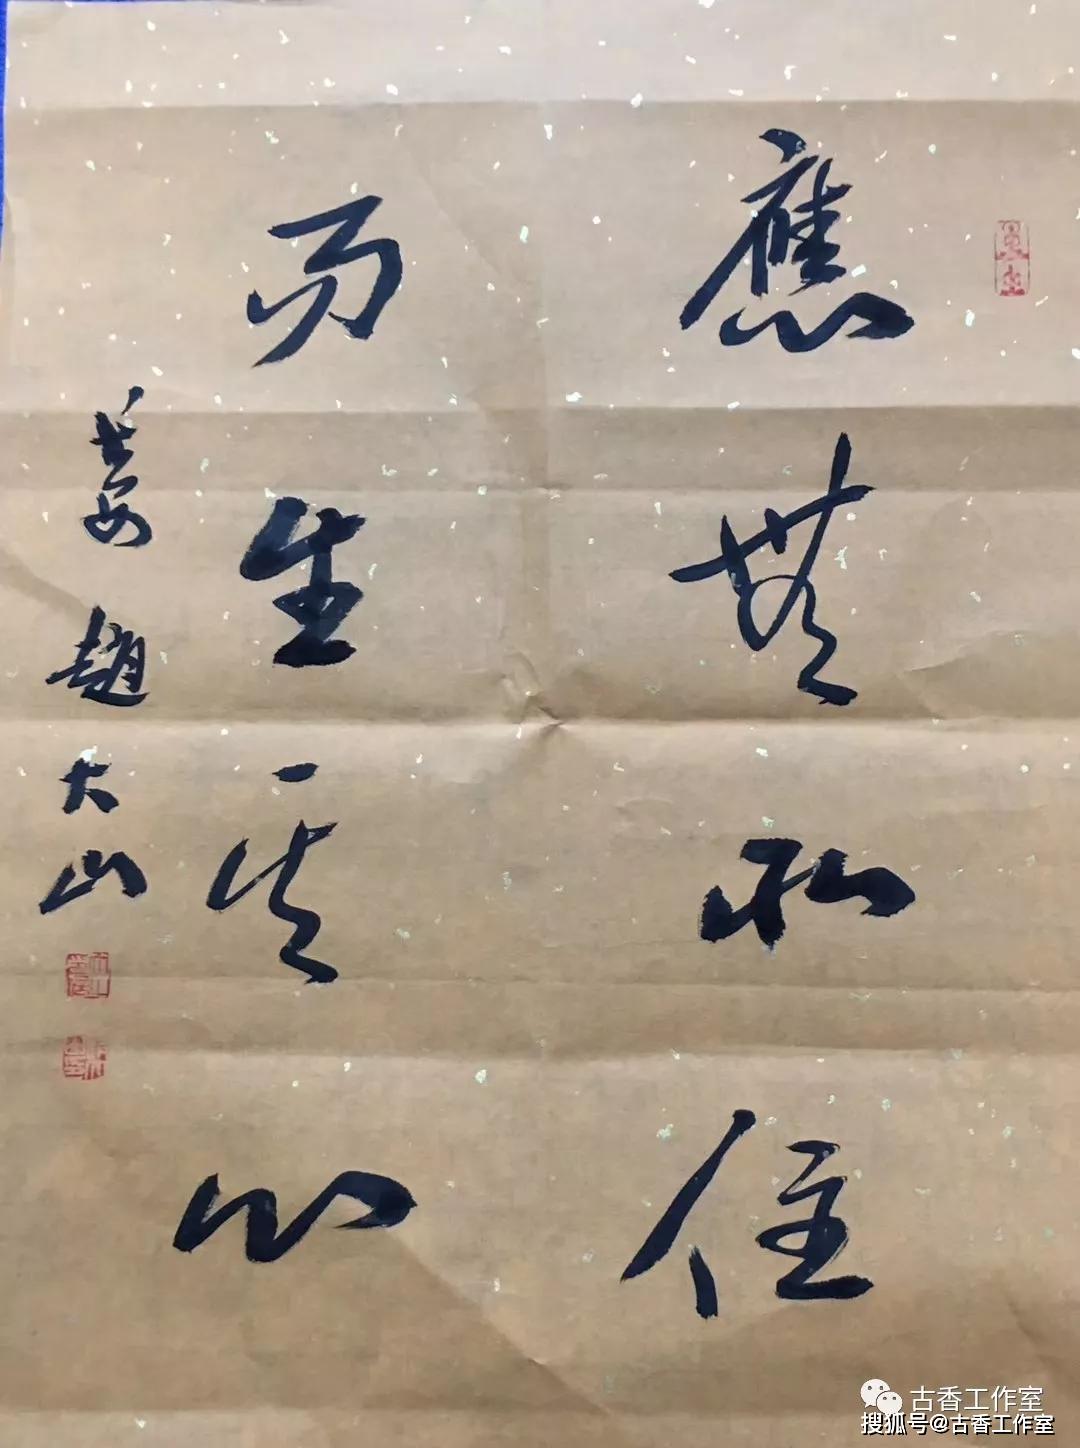 應無所住
而生其心
長安 趙大山
古香工作室
搜狐号@古香工作室